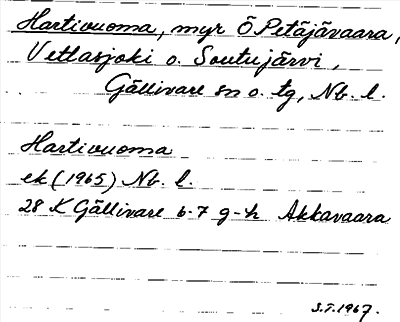 Hartivuoma, myr Ö Petäjävaara,
Vettasjoki o. Soutujärvi,
Gällivare sn o. tg, Nb. l.
Hartivuoma
ek (1965) Nb. l.
28 K Gällivare 6-7 g-h Akkavaara
S.F. 1967.